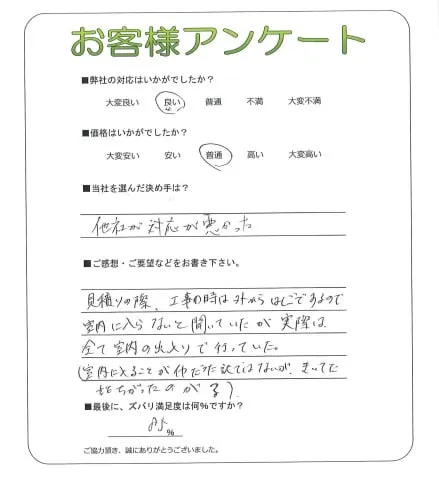 お客様アンケート
■弊社の対応はいかがでしたか？
大変良い 良い 普通 不満 大変不満
■価格はいかがでしたか？
大変安い 安い 普通 高い 大変高い
■当社を選んだ決め手は？
他社が対応が悪かった
■ご感想・ご要望などをお書き下さい。
見積りの際、工事の時は外からはしごであるので
室内に入らないと聞いていたが実際は
全て室内の出入りで行っていた。
(室内に入ることが 訳ではないが、きいてた
ちがったので).
■最後に、ズバリ満足度は何%ですか？
85%
ご協力頂き、誠にありがとうございました。